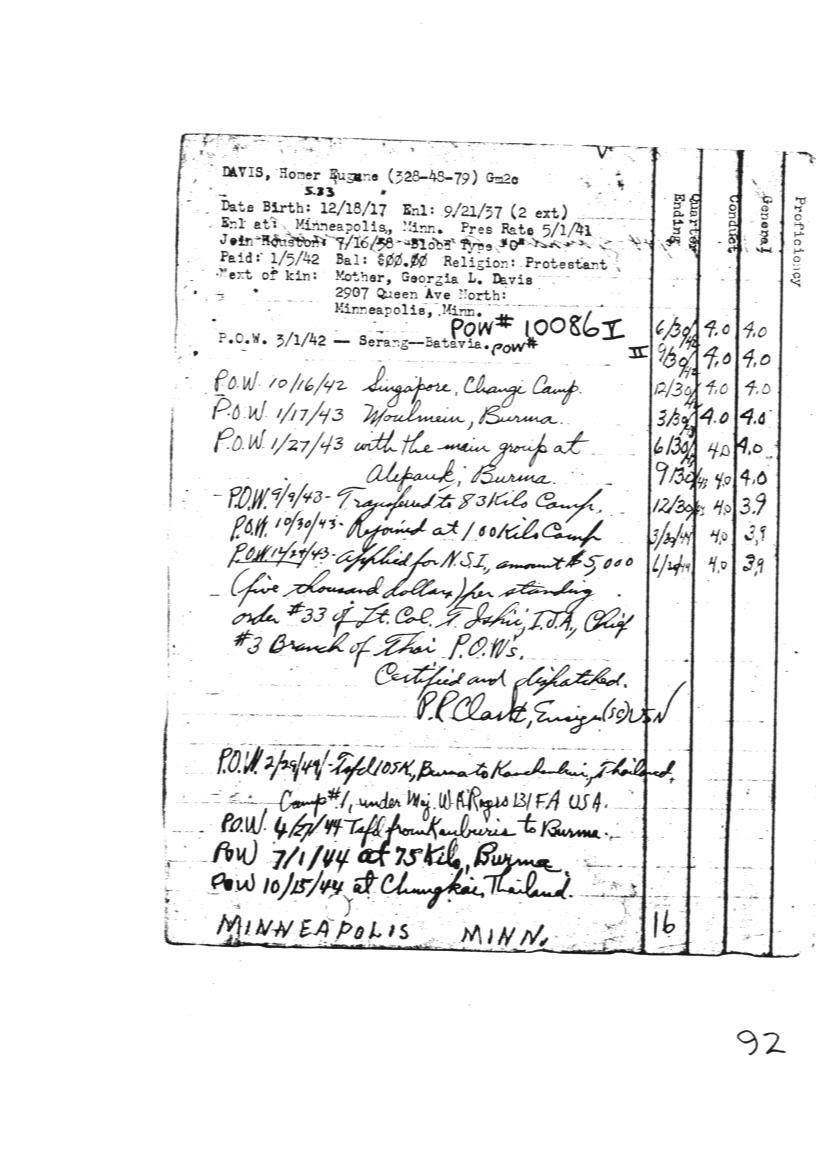 DAVIS, Homer Eugene (328-48-79) Gm2c
5.33
Date Birth: 12/18/17 Enl: 9/21/37 (2 ext)
Enl at: Minneapolis, Minn. Pres Rate 5/1/41
Join Houston: 7/16/38 Blood Type "O"
Paid: 1/5/42 Bal: $00.00 Religion: Protestant
Next of kin: Mother, Georgia L. Davis
2907 Queen Ave North:
Minneapolis, Minn.
POW# 10086 V
P.O.W. 3/1/42 — Serang--Batavia. POW# II
P.O.W. 10/16/42 Singapore, Changi Camp.
P.O.W. 1/17/43 Moulmein, Burma.
P.O.W. 1/27/43 with the main group at
Alepauk, Burma.
P.O.W. 9/9/43 - Transferred to 83 Kilo Camp.
P.O.W. 10/30/43 - Rejoined at 100 Kilo Camp
P.O.W. 12/24/43 - Applied for N.S.I., amount $5,000
(five thousand dollars) per standing
order #33 of Lt. Col. T. Ishii, I.J.A., Chief
#3 Branch of Thai P.O.Ws.
Certified and dispatched.
P.P. Clark, Ensign (SC) USN
P.O.W. 2/29/44 - Tsfd 105K, Burma to Kanchanburi, Thailand.
Camp #1, under Maj. W.A. Rogers 131 F.A. USA.
P.O.W. 4/27/44 Tsfd from Kanburie to Burma.
POW 7/1/44 at 75 Kilo, Burma.
POW 10/15/44 at Chungkai, Thailand.
MINNEAPOLIS MINN. 16
Quarter Ending Conduct General Proficiency
6/30/42 4.0 4.0
9/30/42 4.0 4.0
12/30/42 4.0 4.0
3/30/43 4.0 4.0
6/30/43 4.0 4.0
9/30/43 4.0 4.0
12/30/43 4.0 3.9
3/30/44 4.0 3.9
6/30/44 4.0 3.9
92